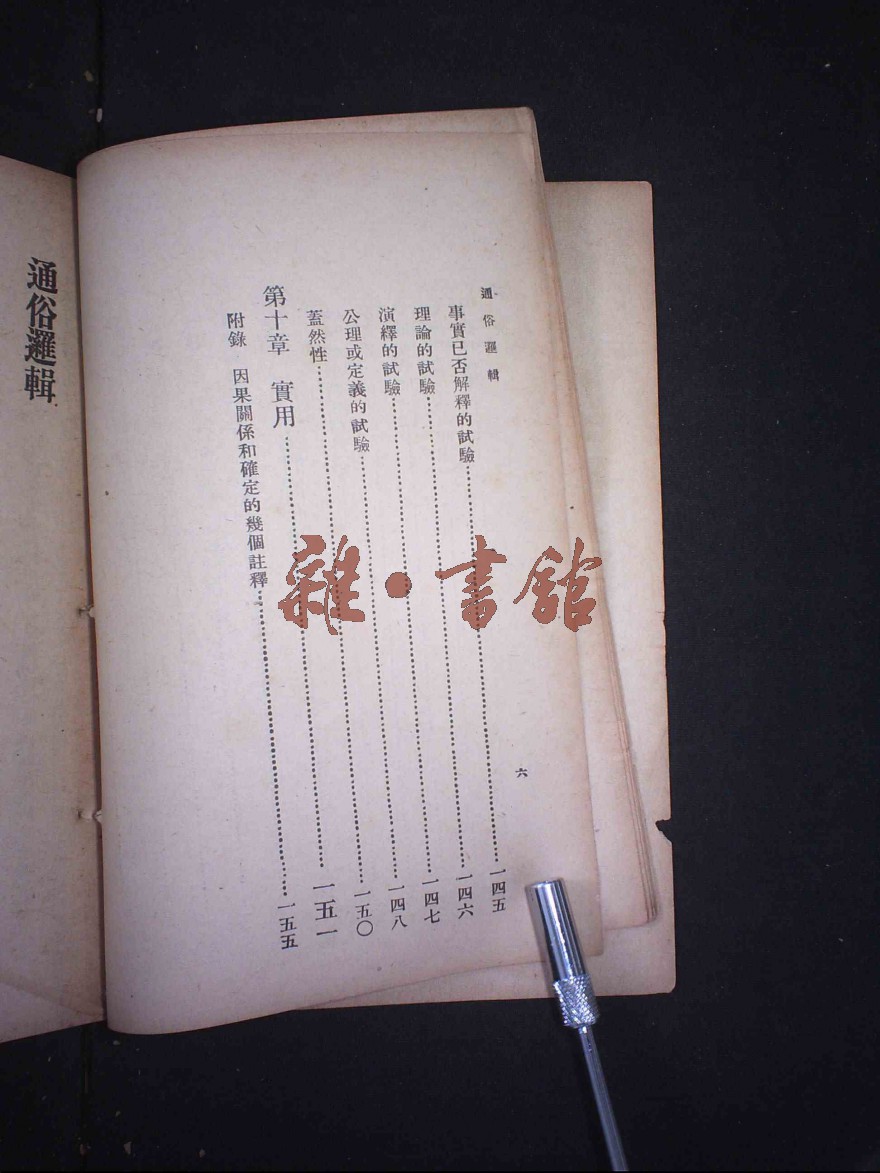 通俗邏輯
事實已否解釋的試驗……一四五
理論的試驗……一四六
演繹的試驗……一四七
公理或定義的試驗……一四八
蓋然性……一五〇
第十章　實用……一五一
附錄　因果關係和確定的幾個註釋……一五五
六
通俗邏輯
雜·書館